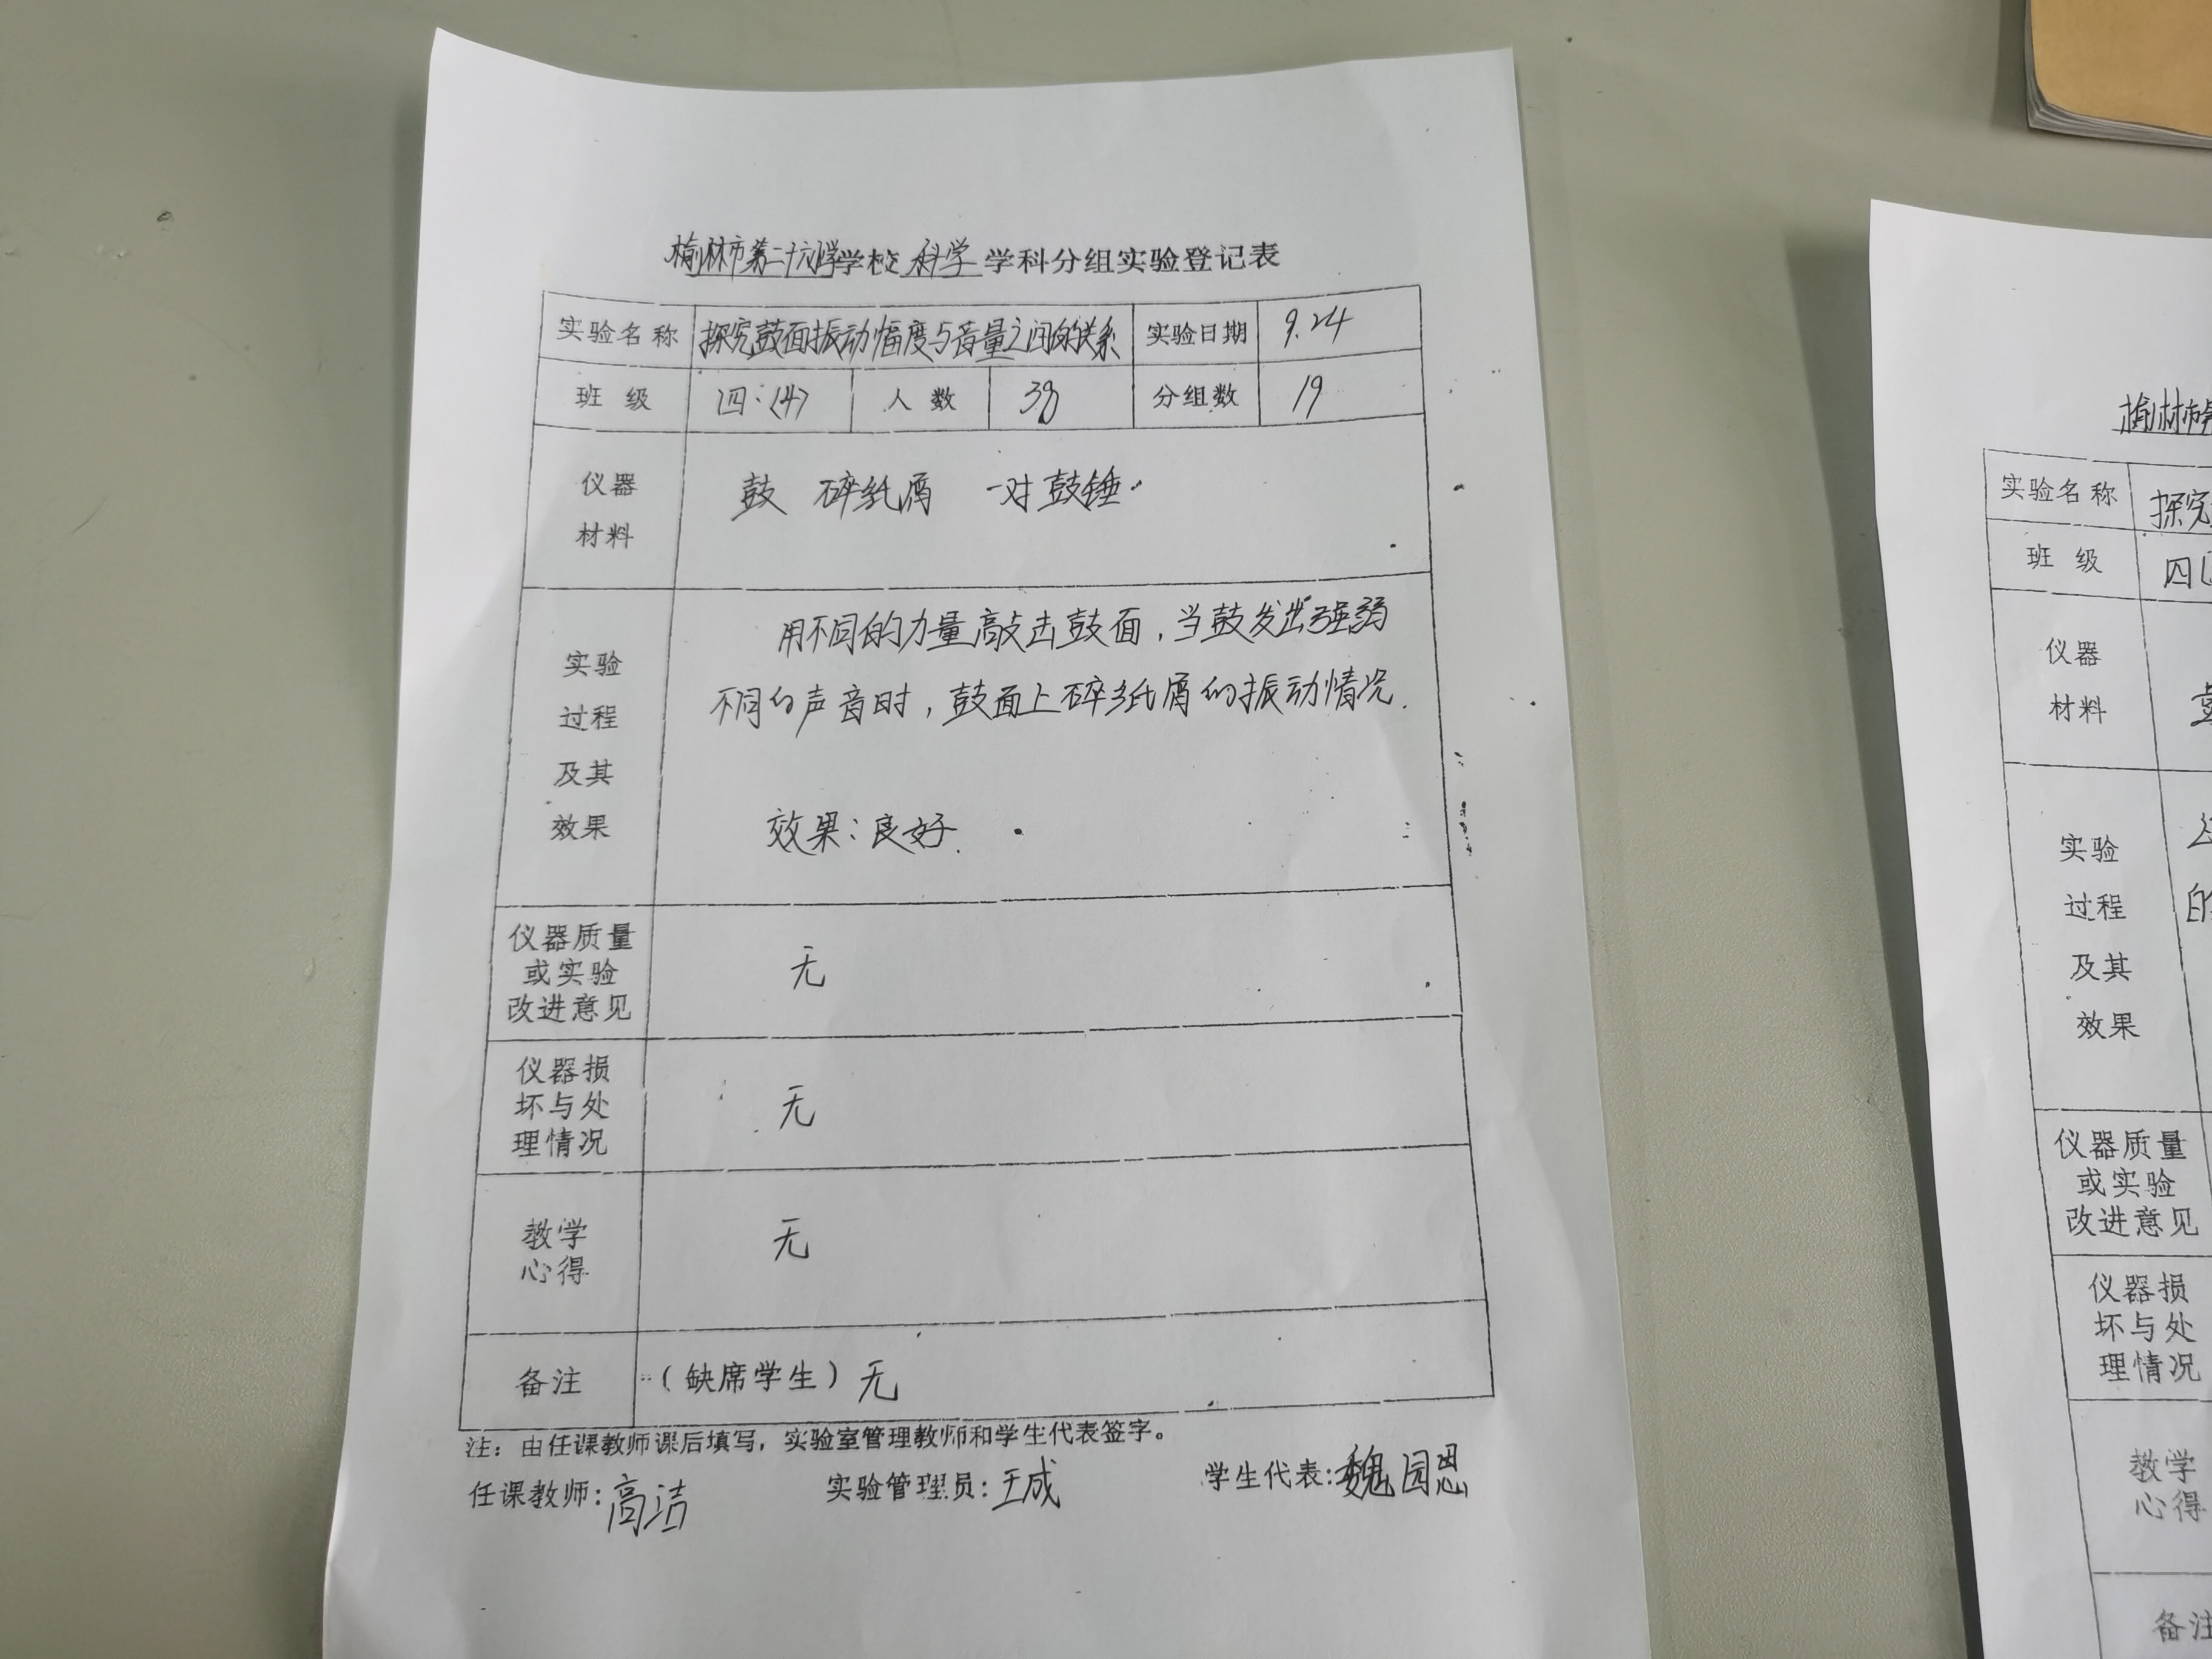 榆林市第二十六小学学校 科学 学科分组实验登记表
实验名称 探究鼓面振动幅度与音量之间的关系 实验日期 9.24
班 级 四.(4) 人 数 38 分组数 19
仪器
材料
鼓 碎纸屑 一对鼓锤.
实验
过程
及其
效果
用不同的力量敲击鼓面,当鼓发出强弱
不同的声音时,鼓面上碎纸屑的振动情况.
效果:良好.
仪器质量
或实验
改进意见
无
仪器损
坏与处
理情况
无
教学
心得
无
备注 (缺席学生)无
注:由任课教师课后填写,实验室管理教师和学生代表签字。
任课教师:高洁 实验管理员:王成 学生代表:魏园恩
榆林市
实验名称 探究
班 级 四(
仪器
材料
实验
过程
及其
效果
的
仪器质量
或实验
改进意见
仪器损
坏与处
理情况
教学
心得
备注